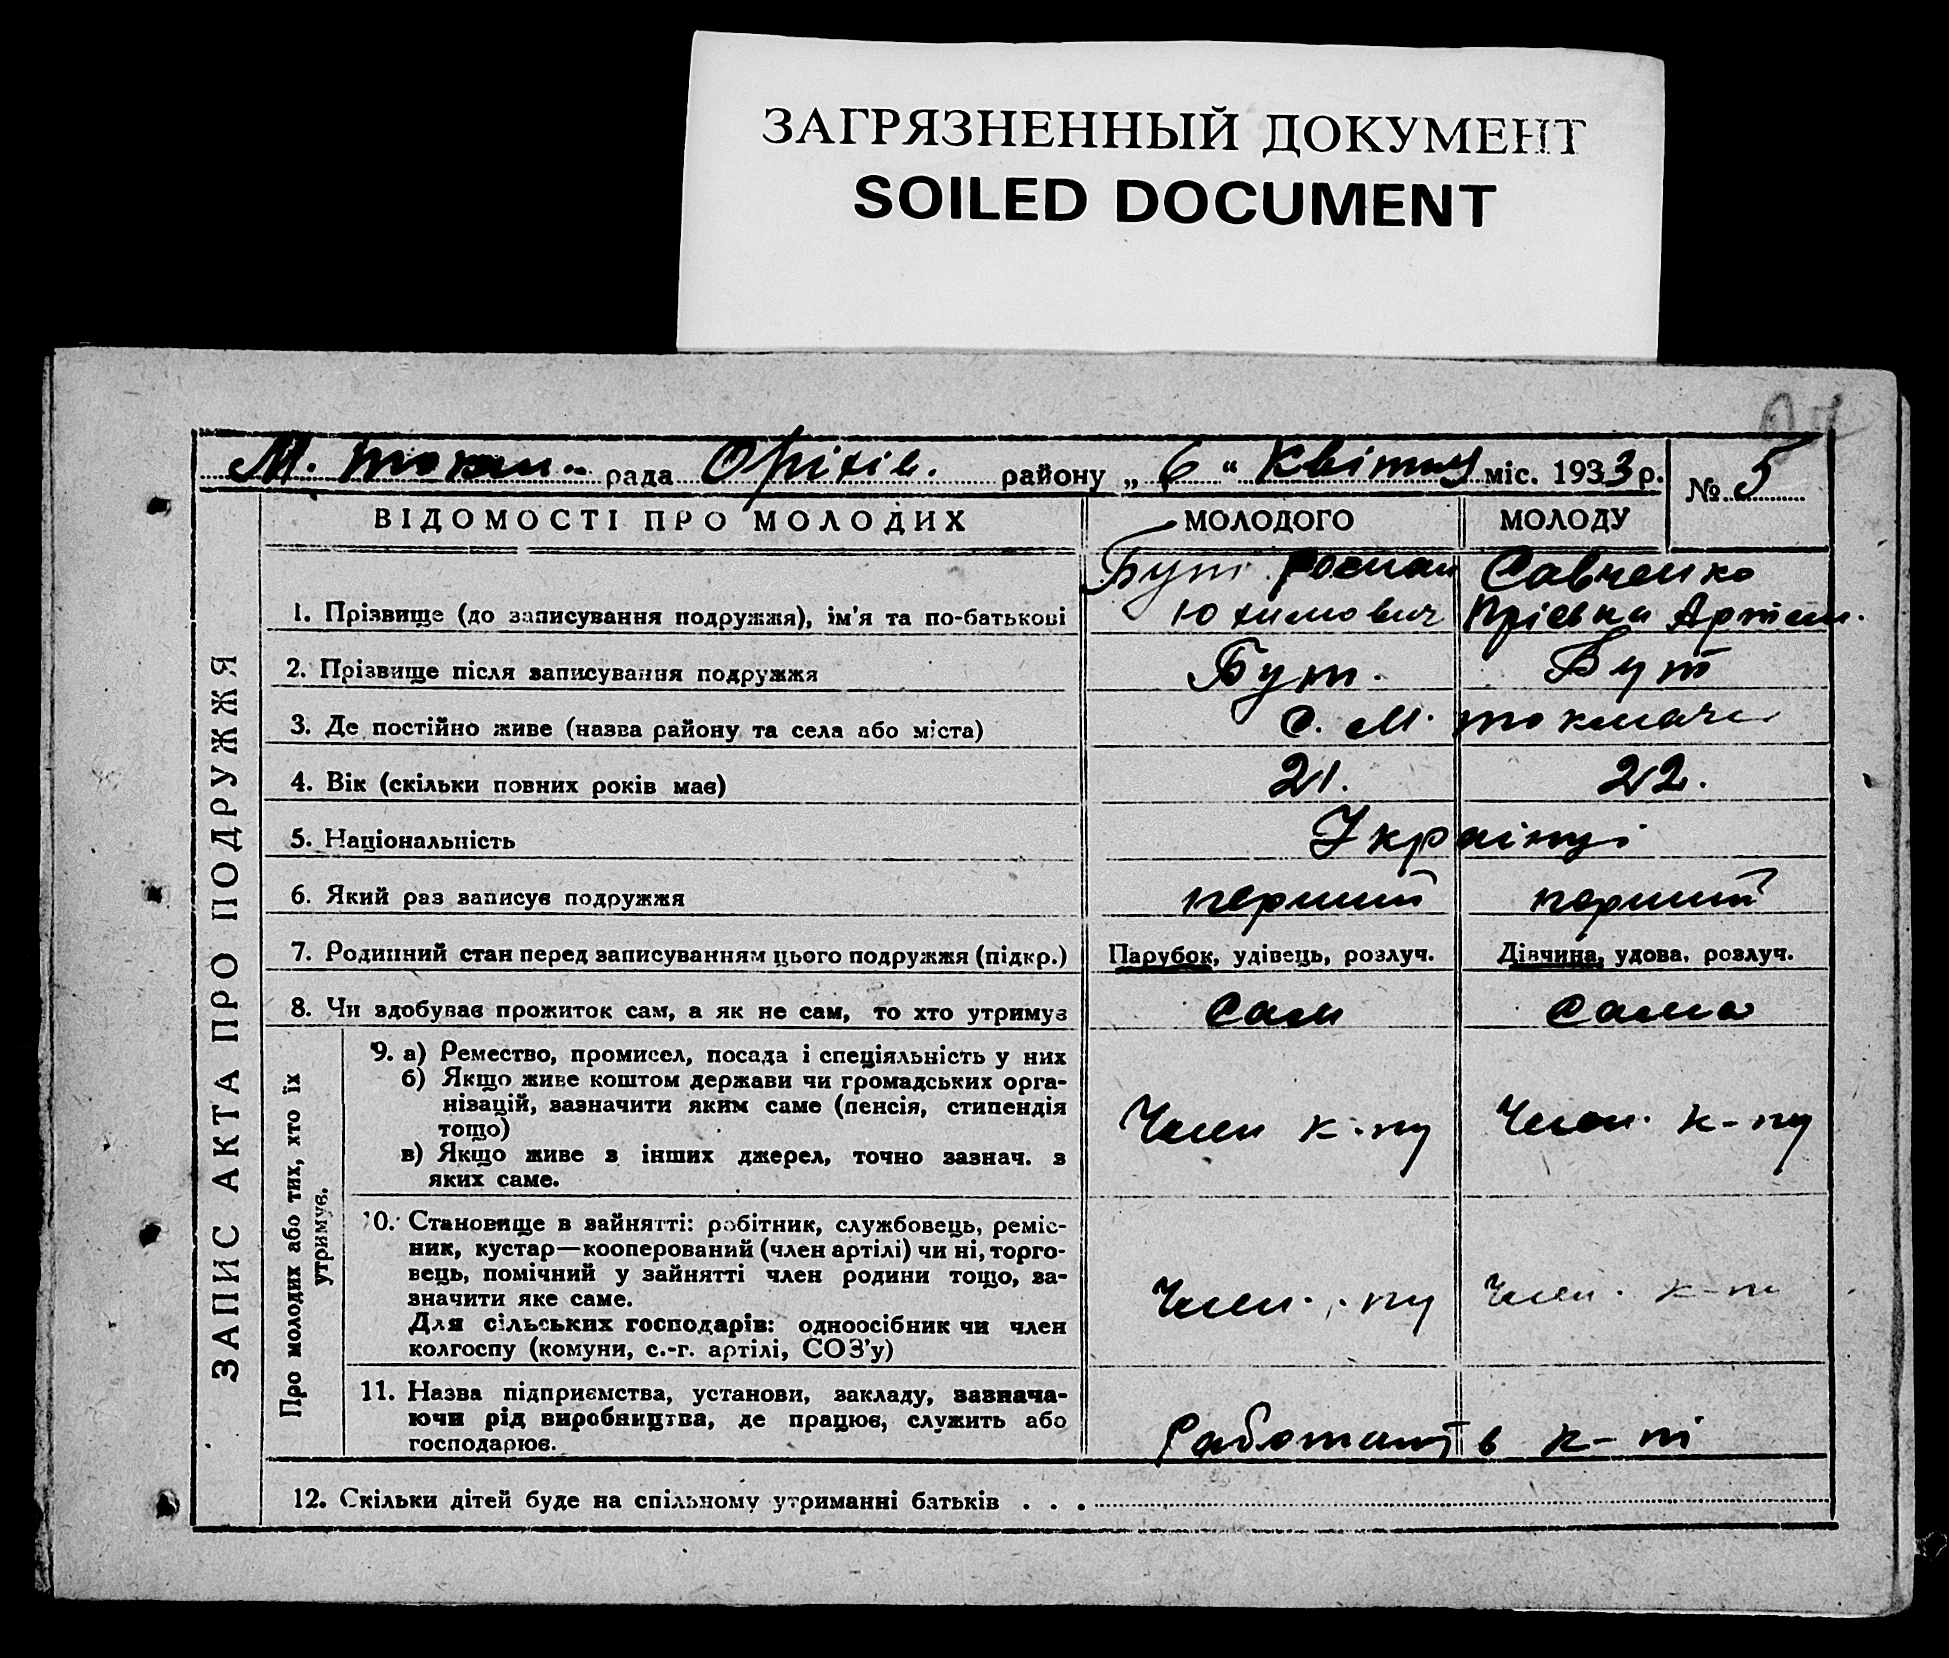 ЗАГРЯЗНЕННЫЙ ДОКУМЕНТ
SOILED DOCUMENT
М. Токм.. рада Оріхів. району „ 6 “ Квітня міс. 1933 р. № 5
ЗАПИС АКТА ПРО ПОДРУЖЖЯ
ВІДОМОСТІ ПРО МОЛОДИХ МОЛОДОГО МОЛОДУ
Бут Роман Савченко
1. Прізвище (до записування подружжя), ім'я та по-батькові Юхимович Артем.
2. Прізвище після записування подружжя Бут. Бут
3. Де постійно живе (назва району та села або міста) с. М. Токмач
4. Вік (скільки повних років має) 21. 22.
5. Національність Українці
6. Який раз записує подружжя перший перший
7. Родинний стан перед записуванням цього подружжя (підкр.) Парубок, удівець, розлуч. Дівчина, удова, розлуч.
8. Чи здобуває прожиток сам, а як не сам, то хто утримує сам сама
Про молодих або тих, хто їх
утримує.
9. а) Ремество, промисел, посада і спеціяльність у них
б) Якщо живе коштом держави чи громадських орга-
нізацій, зазначити яким саме (пенсія, стипендія
тощо)
Член к-пу Член. к-пу
в) Якщо живе з інших джерел, точно зазнач. з
яких саме.
10. Становище в зайнятті: робітник, службовець, реміс-
ник, кустар—кооперований (член артілі) чи ні, торго-
вець, помічний у зайнятті член родини тощо, за-
значити яке саме.
Член. пу Член. к-п
Для сільських господарів: одноосібник чи член
колгоспу (комуни, с.-г. артілі, СОЗ'у)
11. Назва підприємства, установи, закладу, зазнача-
ючи рід виробництва, де працює, служить або
господарює.
Работают в к-пі
12. Скільки дітей буде на спільному утриманні батьків . . .